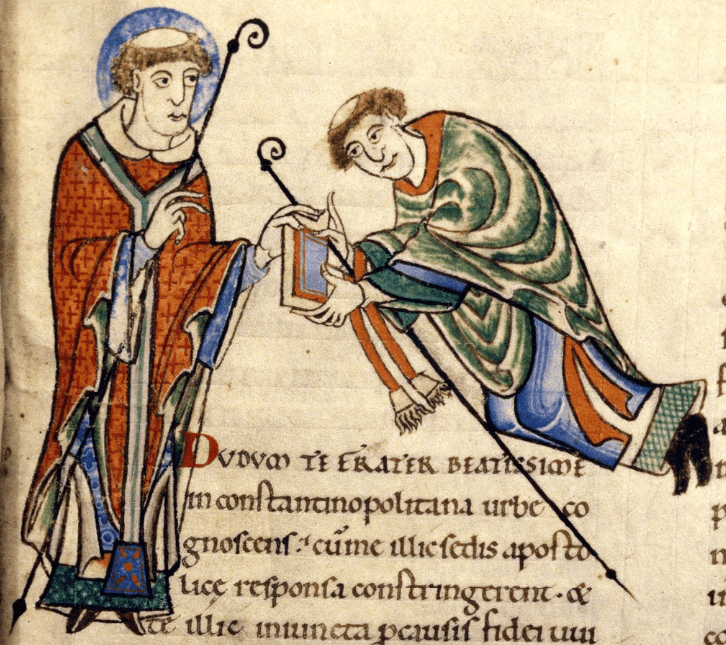 DUDUM TE FRATER BEATISSIME
in constantinopolitana urbe co
gnoscens. cūme illic sedis aposto
lice responsa constringerent. &
te illic iniuncta ꝓcausis fidei uui